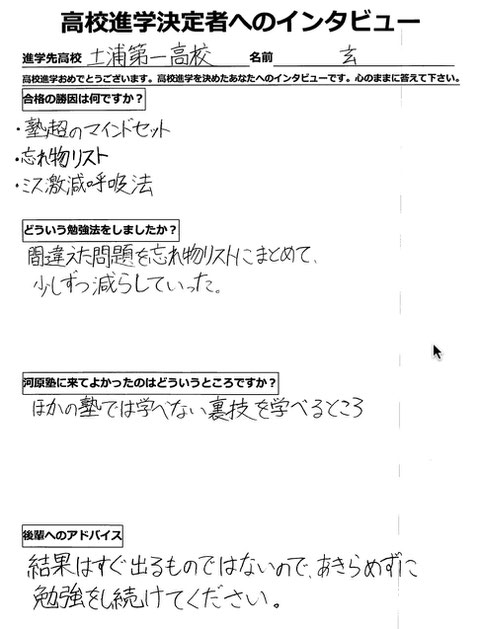 高校進学決定者へのインタビュー
進学先高校 土浦第一高校 名前 玄
高校進学おめでとうございます。高校進学を決めたあなたへのインタビューです。心のままに答えて下さい。
合格の勝因は何ですか？
・塾超のマインドセット
・忘れ物リスト
・ミス激減呼吸法
どういう勉強法をしましたか？
間違えた問題を忘れ物リストにまとめて、
少しずつ減らしていった。
河原塾に来てよかったのはどういうところですか？
ほかの塾では学べない裏技を学べるところ
後輩へのアドバイス
結果はすぐ出るものではないので、あきらめずに
勉強をし続けてください。